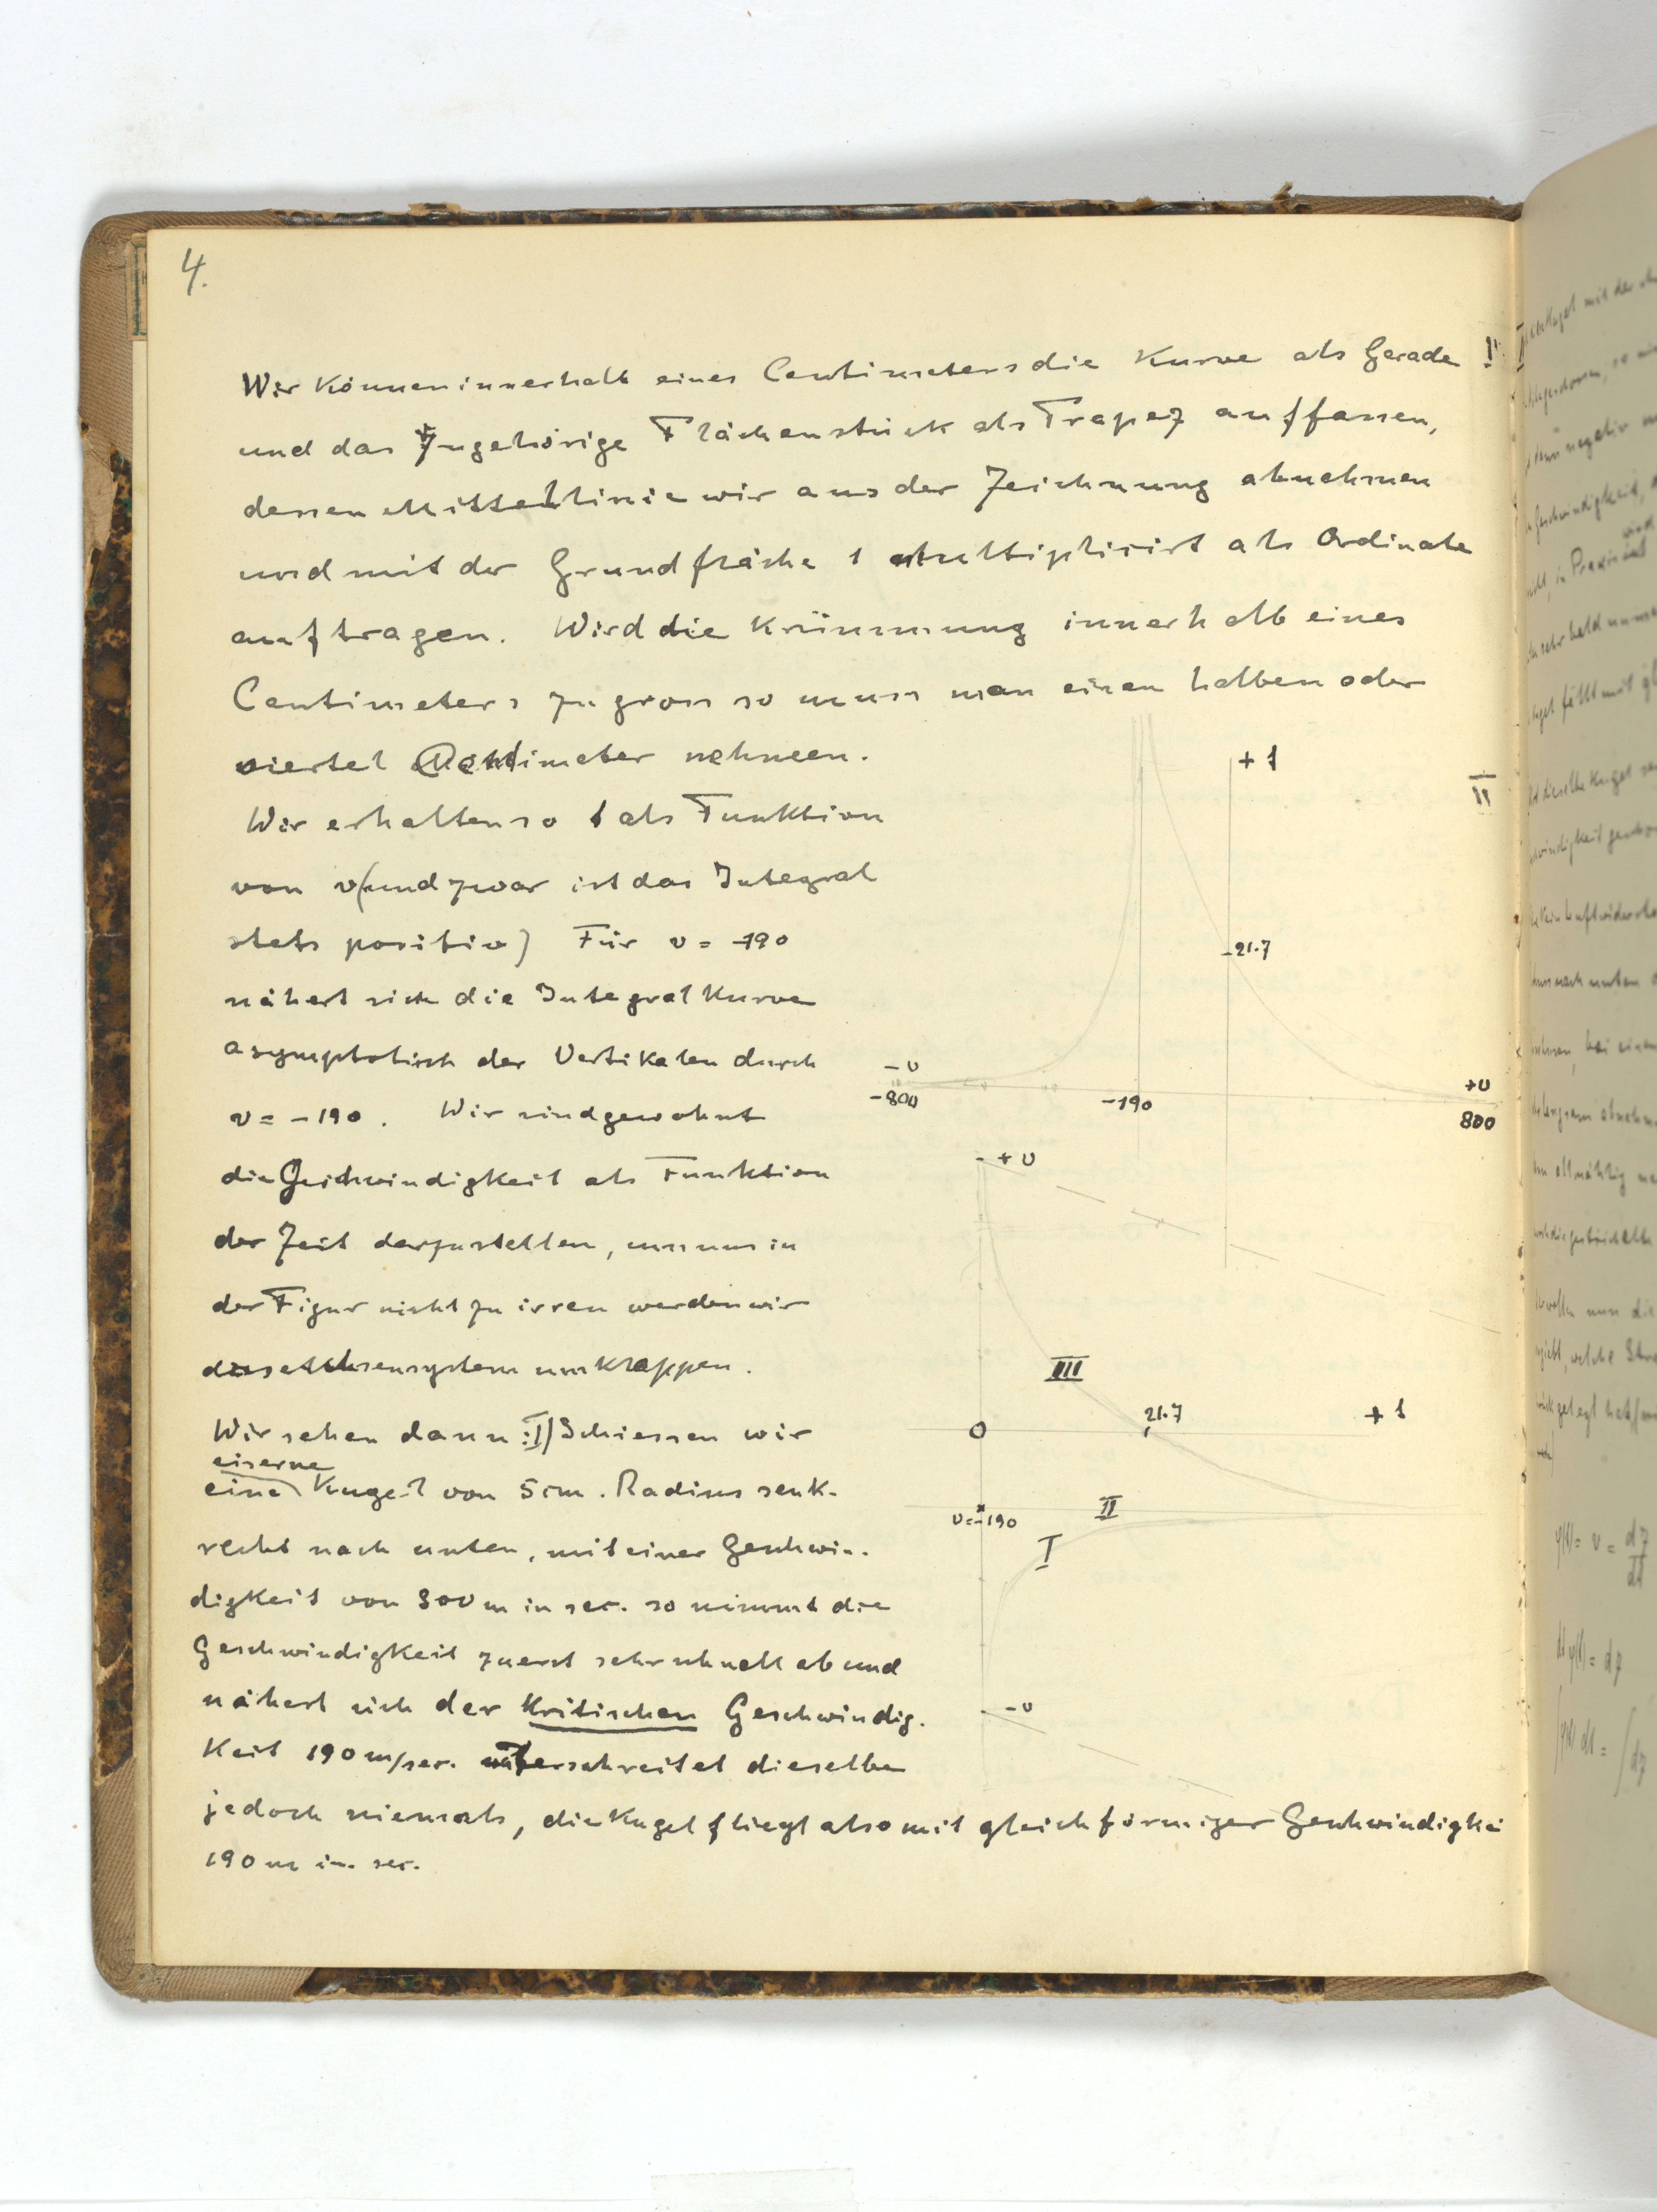 4.
Wir können innerhalb eines Centimeters die Kurve als Gerade !
und das zugehörige Flächenstück als Trapez auffassen,
dessen Mittellinie wir aus der Zeichnung abnehmen
und mit der Grundfläche 1 multiplicirt als Ordinate
auftragen. Wird die Krümmung innerhalb eines
Centimeters zu gross so muss man einen halben oder
viertel Centimeter nehmen.
Wir erhalten so t als Funktion
von v (und zwar ist das Integral
stets positiv) Für v = -190
nähert sich die Integralkurve
asymptotisch der Vertikalen durch
v = -190. Wir sind gewohnt
die Geschwindigkeit als Funktion
der Zeit darzustellen, um uns in
der Figur nicht zu irren werden wir
das Achsensystem umklappen.
Wir sehen dann: I) Schiessen wir
eiserne
eine Kugel von 5 cm. Radius senk-
recht nach unten, mit einer Geschwin-
digkeit von 800 m in sec. so nimmt die
Geschwindigkeit zuerst sehr schnell ab und
nähert sich der kritischen Geschwindig-
keit 190 m/sec. unterschreitet dieselbe
jedoch niemals, die Kugel fliegt also mit gleichförmiger Geschwindigkei
190 m in sec.
+ t
II
21.7
- v
-800
-190
+v
800
+ v
III
21.7
+ t
O
v=-190
II
I
- v